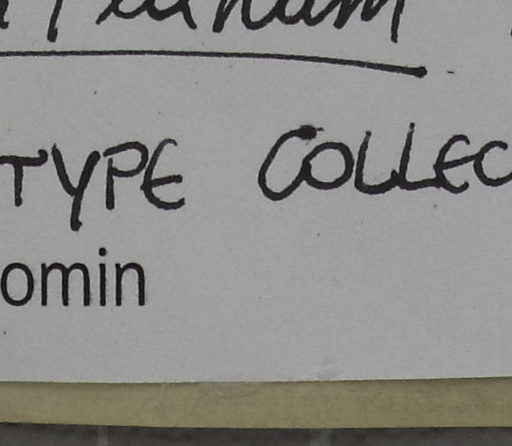 TYPE COLLEC
omin